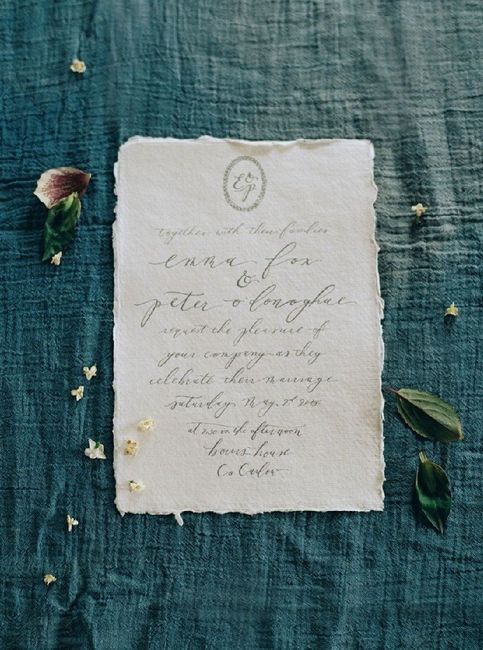 E&P
together with their families
emma fox
&
peter o'donoghue
request the pleasure of
your company as they
celebrate their marriage
saturday May 2nd
at 2:30 in the afternoon
house
Co Carlow